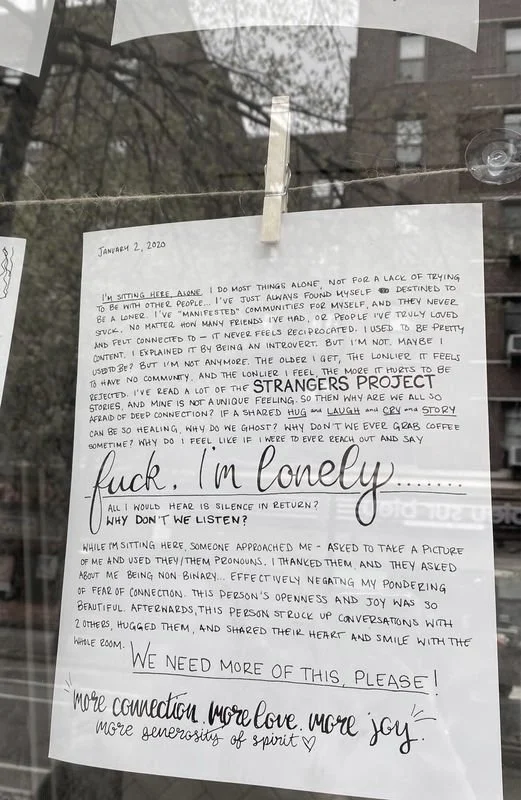 JANUARY 2, 2020
I'M SITTING HERE, ALONE. I DO MOST THINGS ALONE, NOT FOR A LACK OF TRYING
TO BE WITH OTHER PEOPLE... I'VE JUST ALWAYS FOUND MYSELF DESTINED TO
BE A LONER. I'VE "MANIFESTED" COMMUNITIES FOR MYSELF, AND THEY NEVER
STUCK. NO MATTER HOW MANY FRIENDS I'VE HAD, OR PEOPLE I'VE TRULY LOVED
AND FELT CONNECTED TO - IT NEVER FEELS RECIPROCATED. I USED TO BE PRETTY
CONTENT. I EXPLAINED IT BY BEING AN INTROVERT. BUT I'M NOT. MAYBE I
USED TO BE? BUT I'M NOT ANYMORE. THE OLDER I GET, THE LONLIER IT FEELS
TO HAVE NO COMMUNITY. AND THE LONLIER I FEEL, THE MORE IT HURTS TO BE
REJECTED. I'VE READ A LOT OF THE STRANGERS PROJECT
STORIES, AND MINE IS NOT A UNIQUE FEELING. SO THEN WHY ARE WE ALL SO
AFRAID OF DEEP CONNECTION? IF A SHARED HUG and LAUGH and CRY and STORY
CAN BE SO HEALING, WHY DO WE GHOST? WHY DON'T WE EVER GRAB COFFEE
SOMETIME? WHY DO I FEEL LIKE IF I WERE TO EVER REACH OUT AND SAY
fuck. I'm lonely.......
ALL I WOULD HEAR IS SILENCE IN RETURN?
WHY DON'T WE LISTEN?
WHILE I'M SITTING HERE, SOMEONE APPROACHED ME - ASKED TO TAKE A PICTURE
OF ME AND USED THEY/THEM PRONOUNS. I THANKED THEM, AND THEY ASKED
ABOUT ME BEING NON BINARY... EFFECTIVELY NEGATNG MY PONDERING
OF FEAR OF CONNECTION. THIS PERSON'S OPENNESS AND JOY WAS SO
BEAUTIFUL. AFTERWARDS, THIS PERSON STRUCK UP CONVERSATIONS WITH
2 OTHERS, HUGGED THEM, AND SHARED THEIR HEART AND SMILE WITH THE
WHOLE ROOM.
WE NEED MORE OF THIS, PLEASE!
more connection. more love. more joy.
more generosity of spirit ♡